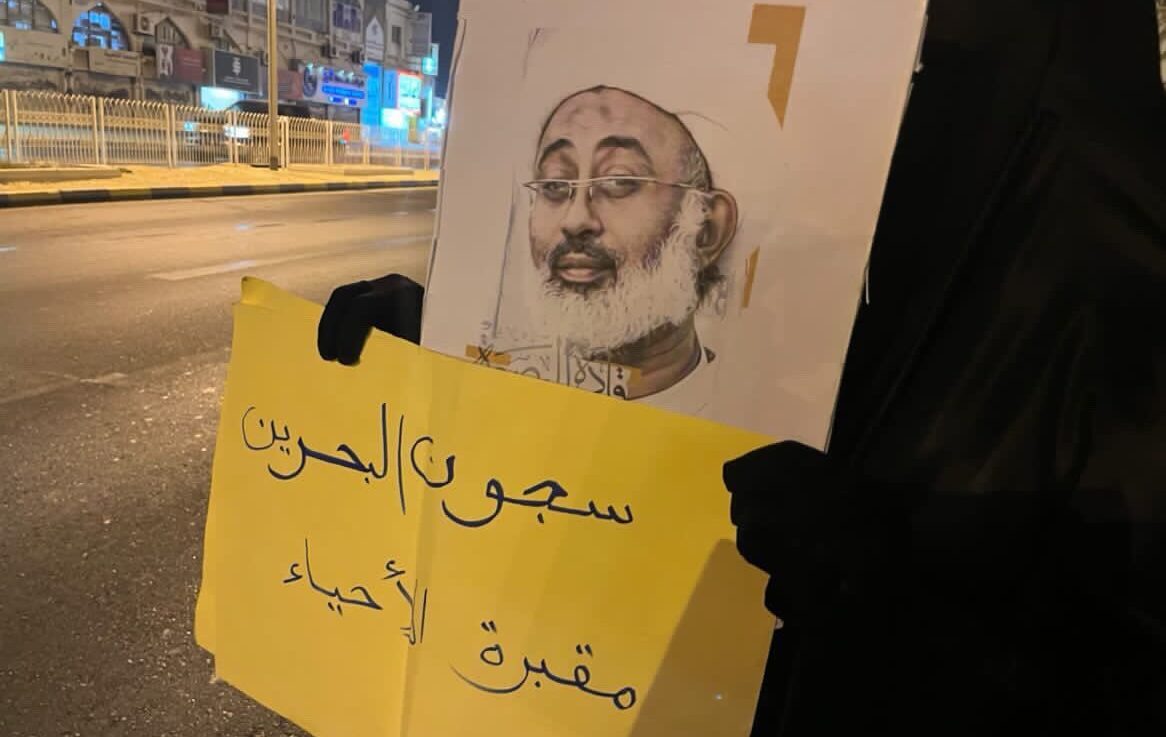 سجون البحرين
مقبرة الأحياء